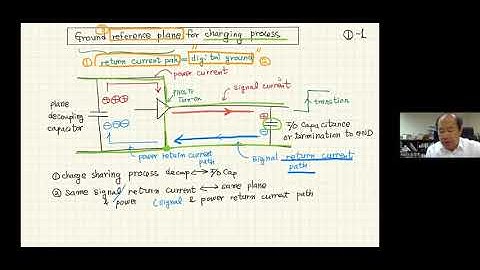 Ground reference plane for charging process
①-1
① return current path = "digital ground" ②
power current
signal current
transition
PMOS
Turn-on
plane
decoupling
capacitor
I/O Capacitance
or termination to GND
power return current
path
signal return current
path
① charge sharing process decap ↔ I/O Cap
② same signal return current ↔ same plane
& power (signal & power return current path